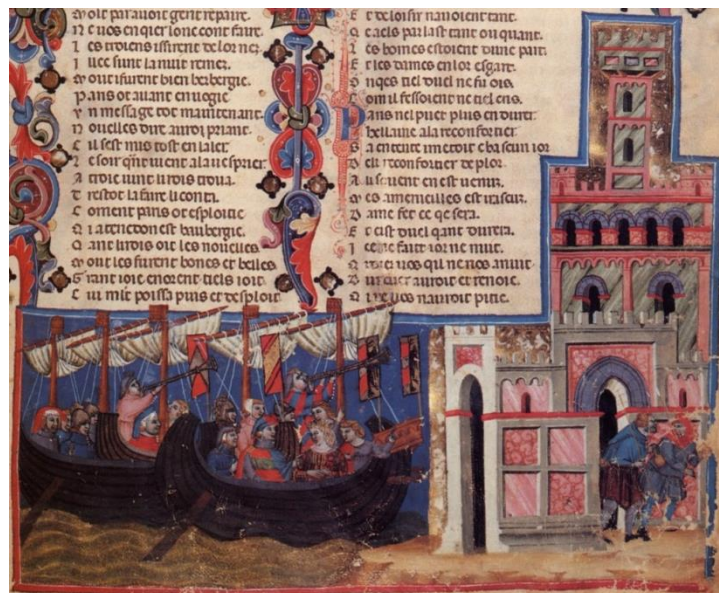 Molt par auoit gent repaire.
Ne uos en quier lonc cont faire.
Les troiens issirent de lor nes.
Iluec sunt la nuit remes.
Mout ifurent bien herbergie.
Paris ot auant enuogie
Vn message tot maintenant
Nouelles dire auroi priant.
Cil sest mis tost en laler
uient ala uesprier
A troie uint lirois troua
Trestot lafaire liconta
Coment paris ot esploitie
Qi atenedon est haubergie.
Qant lirois oit les nouelles
Mout les furent bones et belles
Grant ioie enorent tiels ioit
Cui mlt poissa puis et desploit
Et deloisir nauoient tant.
Qe aels parlast tant ou quant.
Les homes estoient dune part.
Et les dames en lor esgart.
Onqes tiel duel ne fu ois.
Com il fessoient ne tiel cris.
Paris nel puet plus endurer.
hellaine ala reconforter
chascun ior
Deli reconforter de plor.
en est uenus.
Dame fet ce qe sera.
Et cest duel qant durera.
faire ior ne nuit.
uos qil ne uos anuit
auroit et
Qi de uos nauroit pitie.